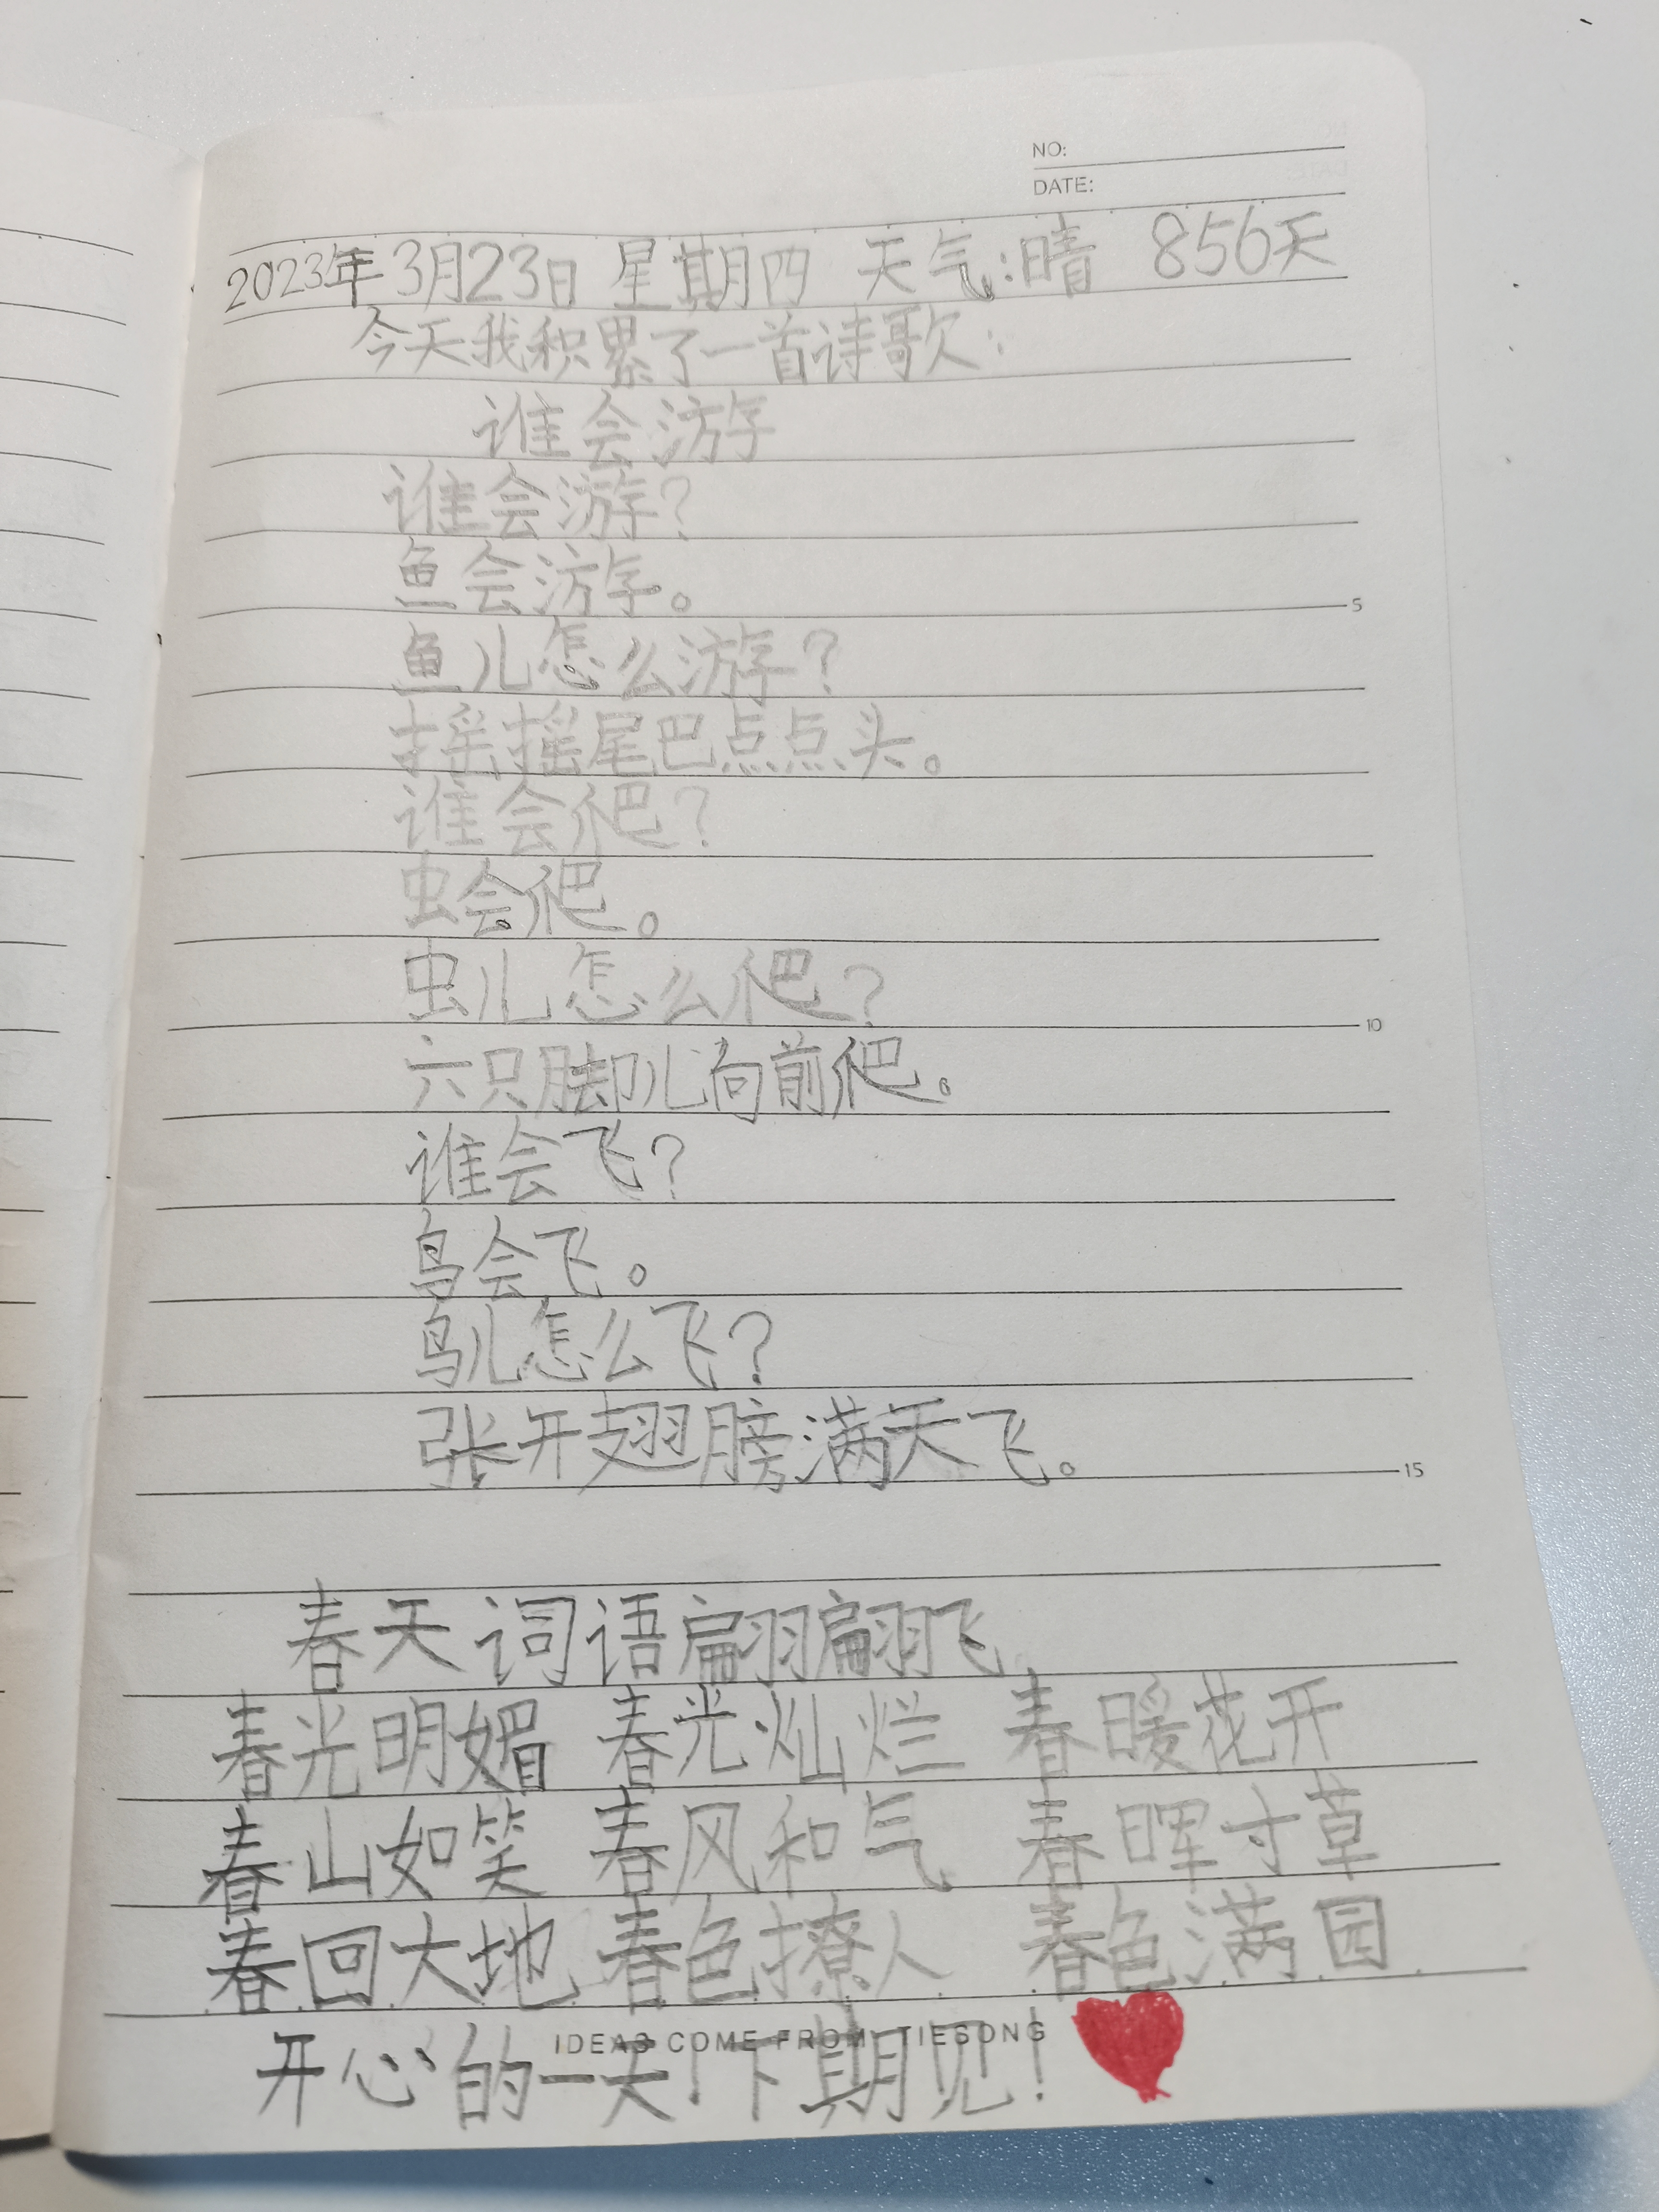 NO:
DATE:
2023年3月23日 星期四 天气:晴 856天
今天我积累了一首诗歌:
谁会游
谁会游?
鱼会游。
5
鱼儿怎么游?
摇摇尾巴点点头。
谁会爬?
虫会爬。
虫儿怎么爬?
10
六只脚儿向前爬。
谁会飞?
鸟会飞。
鸟儿怎么飞?
张开翅膀满天飞。
15
春天词语翩翩飞
春光明媚 春光灿烂 春暖花开
春山如笑 春风和气 春晖寸草
春回大地 春色撩人 春色满园
IDEAS COME FROM TIESONG
开心的一天!下期见!